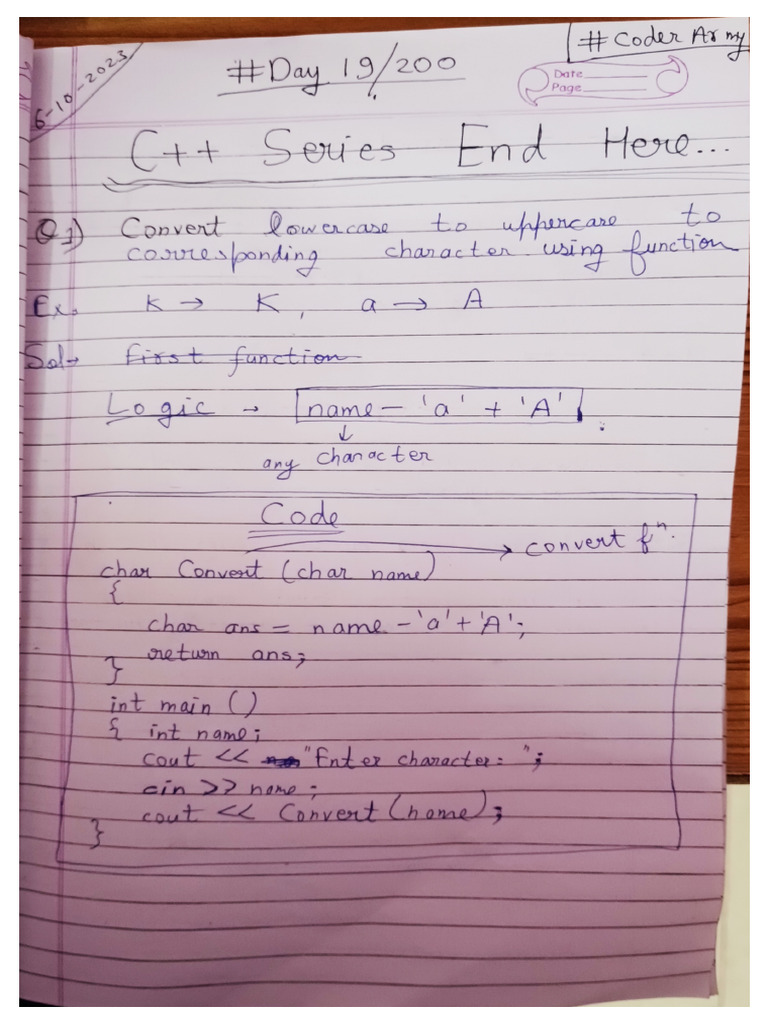 # Coder Army
#Day 19/200
Date
Page
6-10-2023
C++ Series End Here...
Q1) Convert lowercase to uppercase to
corresponding character using function
Ex. k → K, a → A
Sol→ First function
Logic → name - 'a' + 'A'
↓
any character
Code
→ convert fⁿ.
char Convert (char name)
{
char ans = name - 'a' + 'A';
return ans;
}
int main ()
{ int name;
cout << "Enter character: ";
cin >> name;
cout << Convert (name);
}